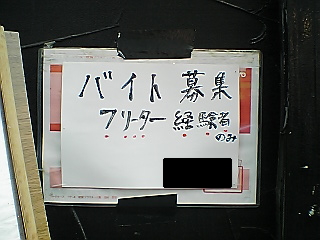 バイト募集
フリーター 経験者
のみ